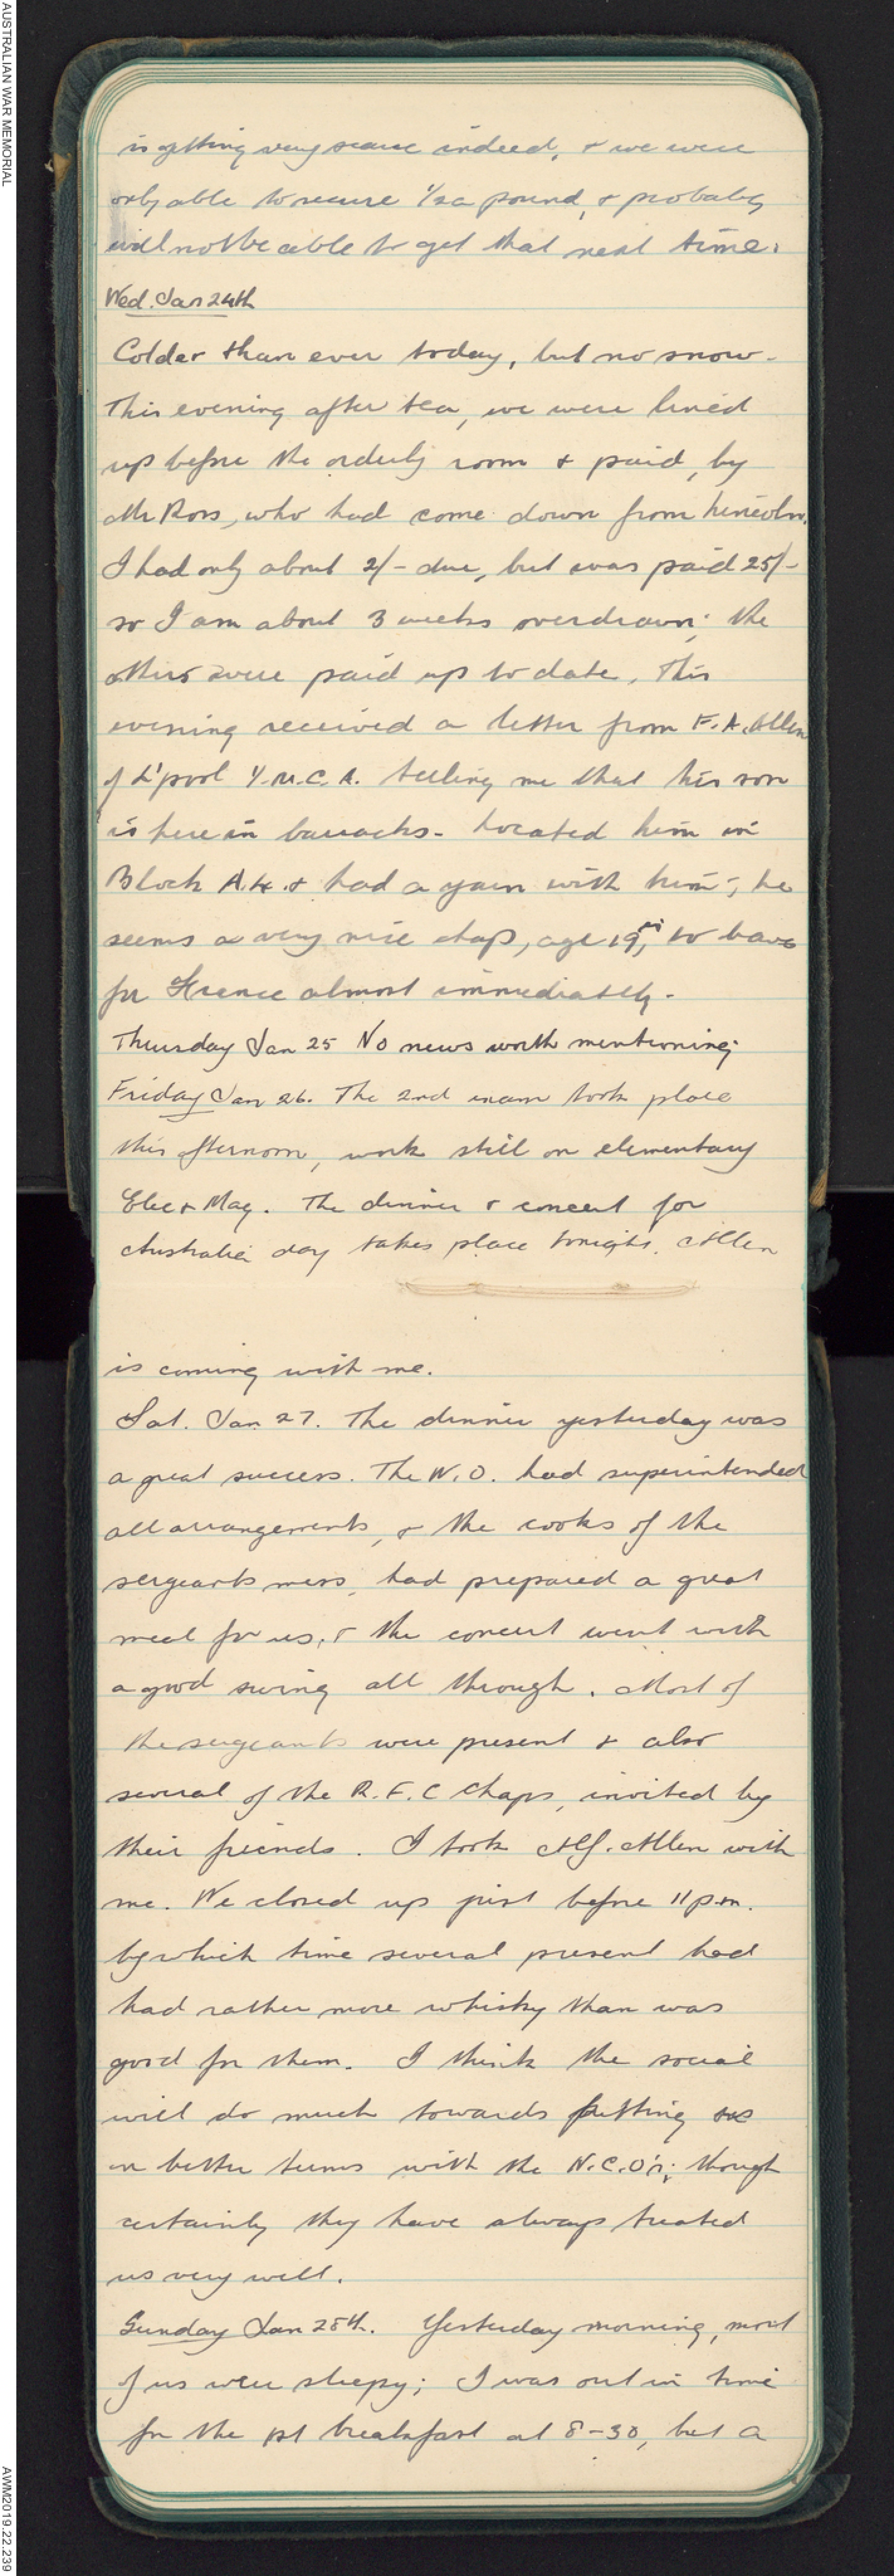 AUSTRALIAN WAR MEMORIAL
is getting very scarce indeed, & we were
only able to secure 1/2 a pound, & probably
will not be able to get that next time.
Wed. Jan 24th
Colder than ever today, but no snow.
This evening after tea, we were lined
up before the orderly room & paid, by
Mr Ross, who had come down from Lincoln.
I had only about 2/- due, but was paid 25/-
so I am about 3 weeks overdrawn; the
others were paid up to date. This
evening received a letter from F. A. Allen
of L'pool Y.M.C.A. telling me that his son
is here in barracks. Located him in
Block A.4. & had a yarn with him; he
seems a very nice chap, age 19, to leave
for France almost immediately.
Thursday Jan 25 No news worth mentioning.
Friday Jan 26. The 2nd exam took place
this afternoon, work still on elementary
Elec & Mag. The dinner & concert for
Australia day takes place tonight. Allen
is coming with me.
Sat. Jan 27. The dinner yesterday was
a great success. The W.O. had superintended
all arrangements, & the cooks of the
sergeants mess, had prepared a great
meal for us, & the concert went with
a good swing all through. Most of
the sergeants were present & also
several of the R.F.C chaps, invited by
their friends. I took Alf. Allen with
me. We closed up just before 11 p.m.
by which time several present had
had rather more whisky than was
good for them. I think the social
will do much towards putting us
on better terms with the N.C.O's; though
certainly they have always treated
us very well.
Sunday Jan 28th. Yesterday morning, most
of us were sleepy; I was out in time
for the 1st breakfast at 8-30, but a
AWM2019.22.239